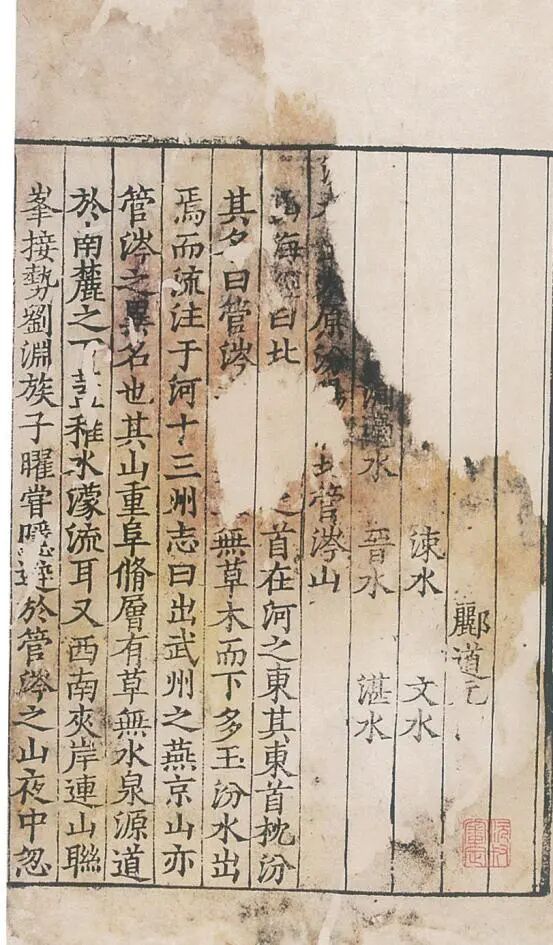 酈道元
涑水 文水
過水 晉水 湛水
原汾 北管涔山
海經曰北 之首在河之東其東首枕汾
其名曰管涔 無草木而下多玉汾水出
焉而流注于河十三州志曰出武州之燕京山亦
管涔之異名也其山重阜脩層有草無水泉源道
於南麓之下 稚水濛流耳又西南夾岸連山聯
峯接勢劉淵族子曜嘗隱避於管涔之山夜中忽